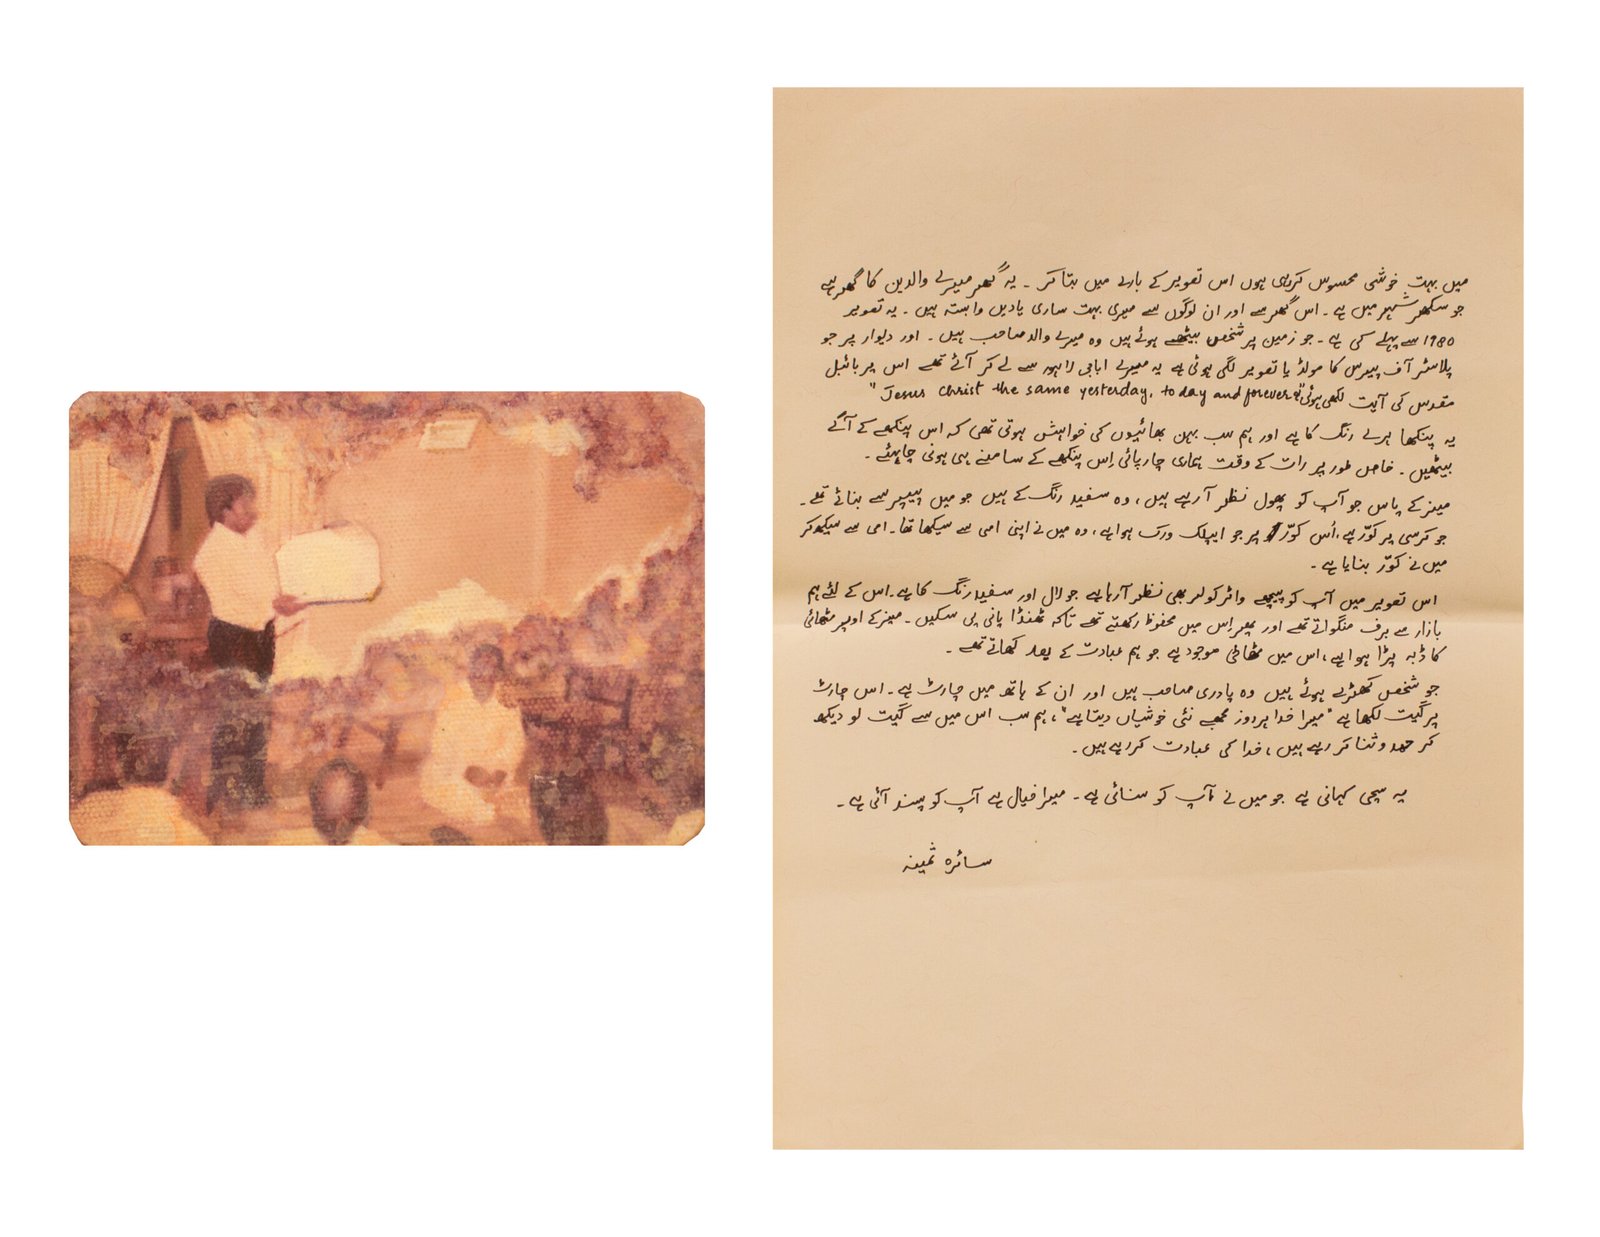 میں بہت خوشی محسوس کر رہی ہوں اس تصویر کے بارے میں بتا کر ۔ یہ گھر میرے والدین کا گھر ہے
جو سکھر شہر میں ہے ۔ اس گھر سے اور ان لوگوں سے میری بہت ساری یادیں وابستہ ہیں ۔ یہ تصویر
1980 سے پہلے کی ہے ۔ جو زمین پر شخص بیٹھے ہوئے ہیں وہ میرے والد صاحب ہیں ۔ اور دیوار پر جو
پلاسٹر آف پیرس کا مولڈ یا تصویر لگی ہوئی ہے یہ میرے اباجی لاہور سے لے کر آئے تھے اس پر بائبل
مقدس کی آیت لکھی ہوئی ہے "Jesus Christ the same yesterday, today and forever"
یہ پنکھا ہرے رنگ کا ہے اور ہم سب بہن بھائیوں کی خواہش ہوتی تھی کہ اس پنکھے کے آگے
بیٹھیں ۔ خاص طور پر رات کے وقت ہماری چارپائی اِس پنکھے کے سامنے ہی ہونی چاہئے ۔
میز کے پاس جو آپ کو پھول نظر آ رہے ہیں، وہ سفید رنگ کے ہیں جو میں پیپر سے بنائے تھے ۔
جو کرسی پر کوّر ہے، اُس کوّر پر جو ایپلک ورک ہوا ہے، وہ میں نے اپنی امی سے سیکھا تھا ۔ امی سے سیکھ کر
میں نے کوّر بنایا ہے ۔
اس تصویر میں آپ کو پیچھے واٹر کولر بھی نظر آ رہا ہے جو لال اور سفید رنگ کا ہے ۔ اس کے لئے ہم
بازار سے برف منگواتے تھے اور پھر اِس میں محفوظ رکھتے تھے تاکہ ٹھنڈا پانی پی سکیں ۔ میز کے اوپر مٹھائی
کا ڈبہ پڑا ہوا ہے، اس میں مٹھائی موجود ہے جو ہم عبادت کے بعد کھاتے تھے ۔
جو شخص کھڑے ہوئے ہیں وہ پادری صاحب ہیں اور ان کے ہاتھ میں چارٹ ہے ۔ اس چارٹ
پر گیت لکھا ہے "میرا خدا ہر روز مجھے نئی خوشیاں دیتا ہے"، ہم سب اس میں سے گیت کو دیکھ
کر حمد و ثنا کر رہے ہیں، خدا کی عبادت کر رہے ہیں ۔
یہ سچی کہانی ہے جو میں نے آپ کو سنائی ہے ۔ میرا خیال ہے آپ کو پسند آئی ہے ۔
سائرہ ثمینہ